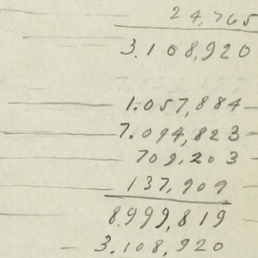 24,765
3.108,920
1.057,884
7.094,823
709,203
137,909
8.999,819
3.108,920